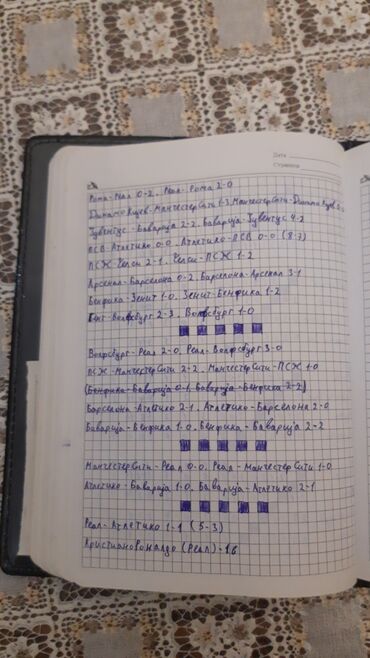 Дата
Страница
Рома-Реал 0-2, Реал-Рома 2-0
Динамо Киев-Манчестер Сити 1-3, Манчестер Сити-Динамо Киев
Јувентус-Баварија 2-2, Баварија-Јувентус 4-2
ПСВ-Атлетико 0-0, Атлетико-ПСВ 0-0 (8-7)
ПСЖ-Челси 2-1, Челси-ПСЖ 1-2
Арсенал-Барселона 0-2, Барселона-Арсенал 3-1
Бенфика-Зенит 1-0, Зенит-Бенфика 1-2
Гент-Волфсбург 2-3, Волфсбург 1-0
Волфсбург-Реал 2-0, Реал-Волфсбург 3-0
ПСЖ-Манчестер Сити 2-2, Манчестер Сити-ПСЖ 1-0
(Бенфика-Баварија 0-1, Баварија-Бенфика 2-2)
Барселона-Атлетико 2-1, Атлетико-Барселона 2-0
Баварија-Бенфика 1-0, Бенфика-Баварија 2-2
Манчестер Сити-Реал 0-0, Реал-Манчестер Сити 1-0
Атлетико-Баварија 1-0, Баварија-Атлетико 2-1
Реал-Атлетико 1-1 (5-3)
Кристиано Роналдо (Реал)-16